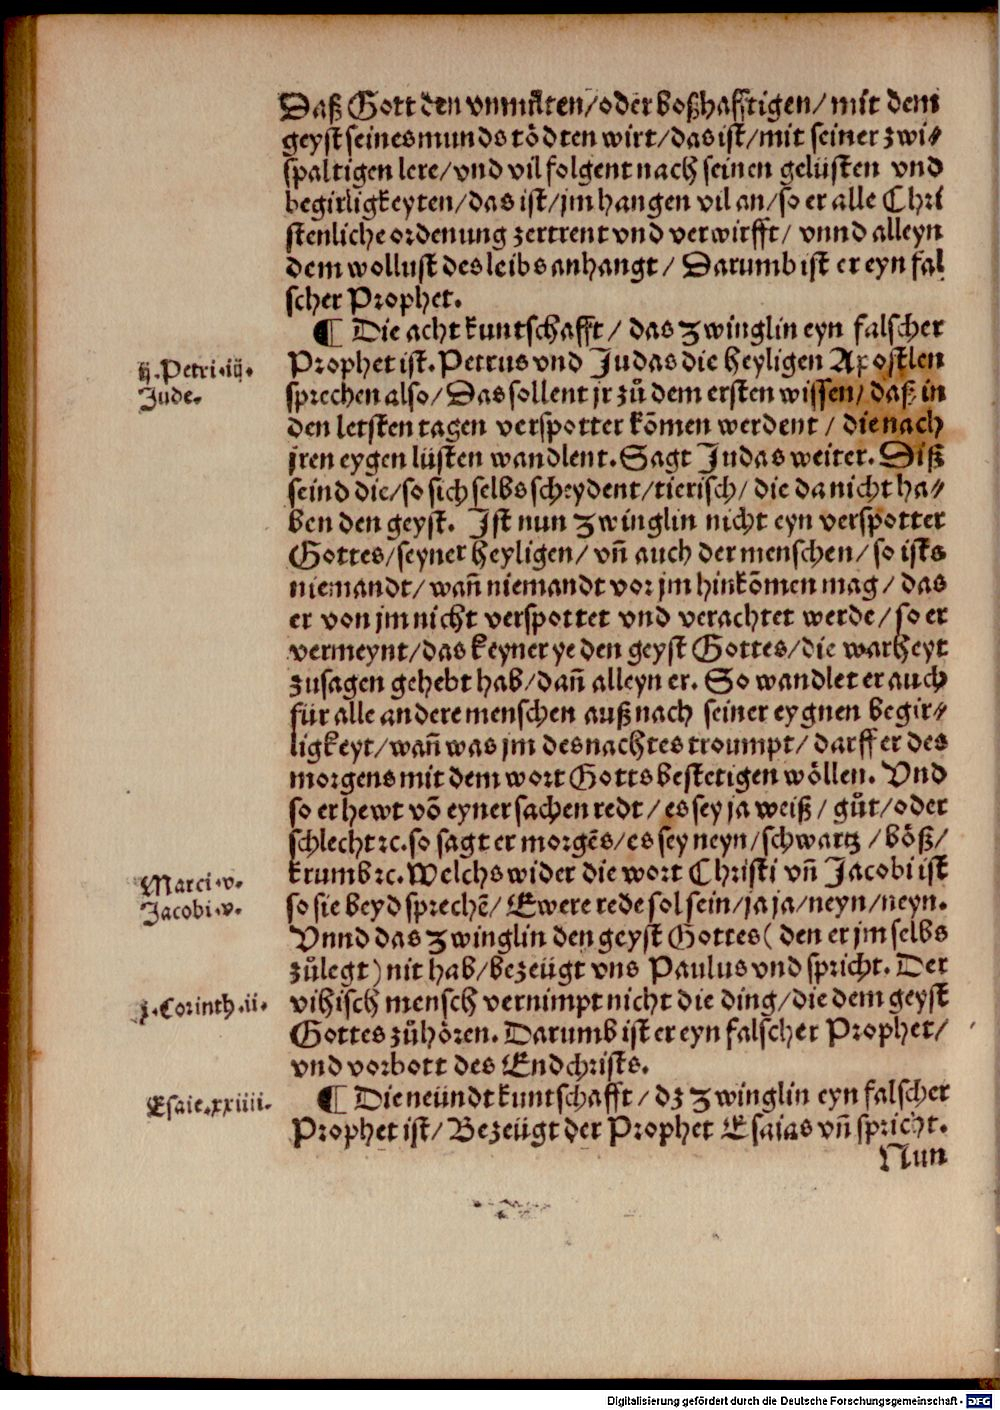 Daß Gott den vnmilten/oder boßhafftigen/ mit dem
geyst seines munds tödten wirt/das ist/mit seiner zwi⸗
spaltigen lere/vnd vil folgent nach seinen gelüsten vnd
begirligkeyten/das ist/jm hangen vil an/so er alle Chri
stenliche ordenung zertrent vnd verwirfft/ vnnd alleyn
dem wollust des leibs anhangt/ Darumb ist er eyn fal
scher Prophet.
¶ Die acht kuntschafft/ das Zwinglin eyn falscher
ij.Petri.iij.
Prophet ist. Petrus vnd Judas die heyligen Apostlen
Jude.
sprechen also/ Das sollent jr zů dem ersten wissen/ daß in
den letsten tagen verspotter kõmen werdent/ die nach
jren eygen lüsten wandlent. Sagt Judas weiter. Diß
seind die/so sich selbs scheydent/tierisch/ die da nicht ha⸗
ben den geyst. Ist nun Zwinglin nicht eyn verspotter
Gottes/seyner heyligen/ vñ auch der menschen/ so ists
niemandt/ wañ niemandt vor jm hinkõmen mag/ das
er von jm nicht verspottet vnd verachtet werde/ so er
vermeynt/das keyner ye den geyst Gottes/die warheyt
zusagen gehebt hab/dañ alleyn er. So wandlet er auch
für alle andere menschen auß nach seiner eygnen begir⸗
ligkeyt/wañ was jm des nachtes troumpt/ darff er des
morgens mit dem wort Gotts bestetigen wöllen. Vnd
so er hewt võ eyner sachen redt/ es sey ja weiß/ gůt/oder
schlecht ꝛc. so sagt er morgẽs/es sey neyn/schwartz /böß/
krumb ꝛc. Welchs wider die wort Christi vñ Jacobi ist
Marci.v.
Jacobi.v.
so sie beyd sprechẽ/ Ewere rede sol sein/ja ja/neyn/neyn.
Vnnd das Zwinglin den geyst Gottes( den er jm selbs
zůlegt) nit hab/bezeügt vns Paulus vnd spricht. Der
j.Corinth.ii.
vihisch mensch vernimpt nicht die ding/die dem geyst
Gottes zůhören. Darumb ist er eyn falscher Prophet/
vnd vorbott des Endchrists.
Esaie.xxiiii.
¶ Die neündt kuntschafft/ dz Zwinglin eyn falscher
Prophet ist/ Bezeügt der Prophet Esaias vñ spricht.
Nun
Digitalisierung gefördert durch die Deutsche Forschungsgemeinschaft - DFG